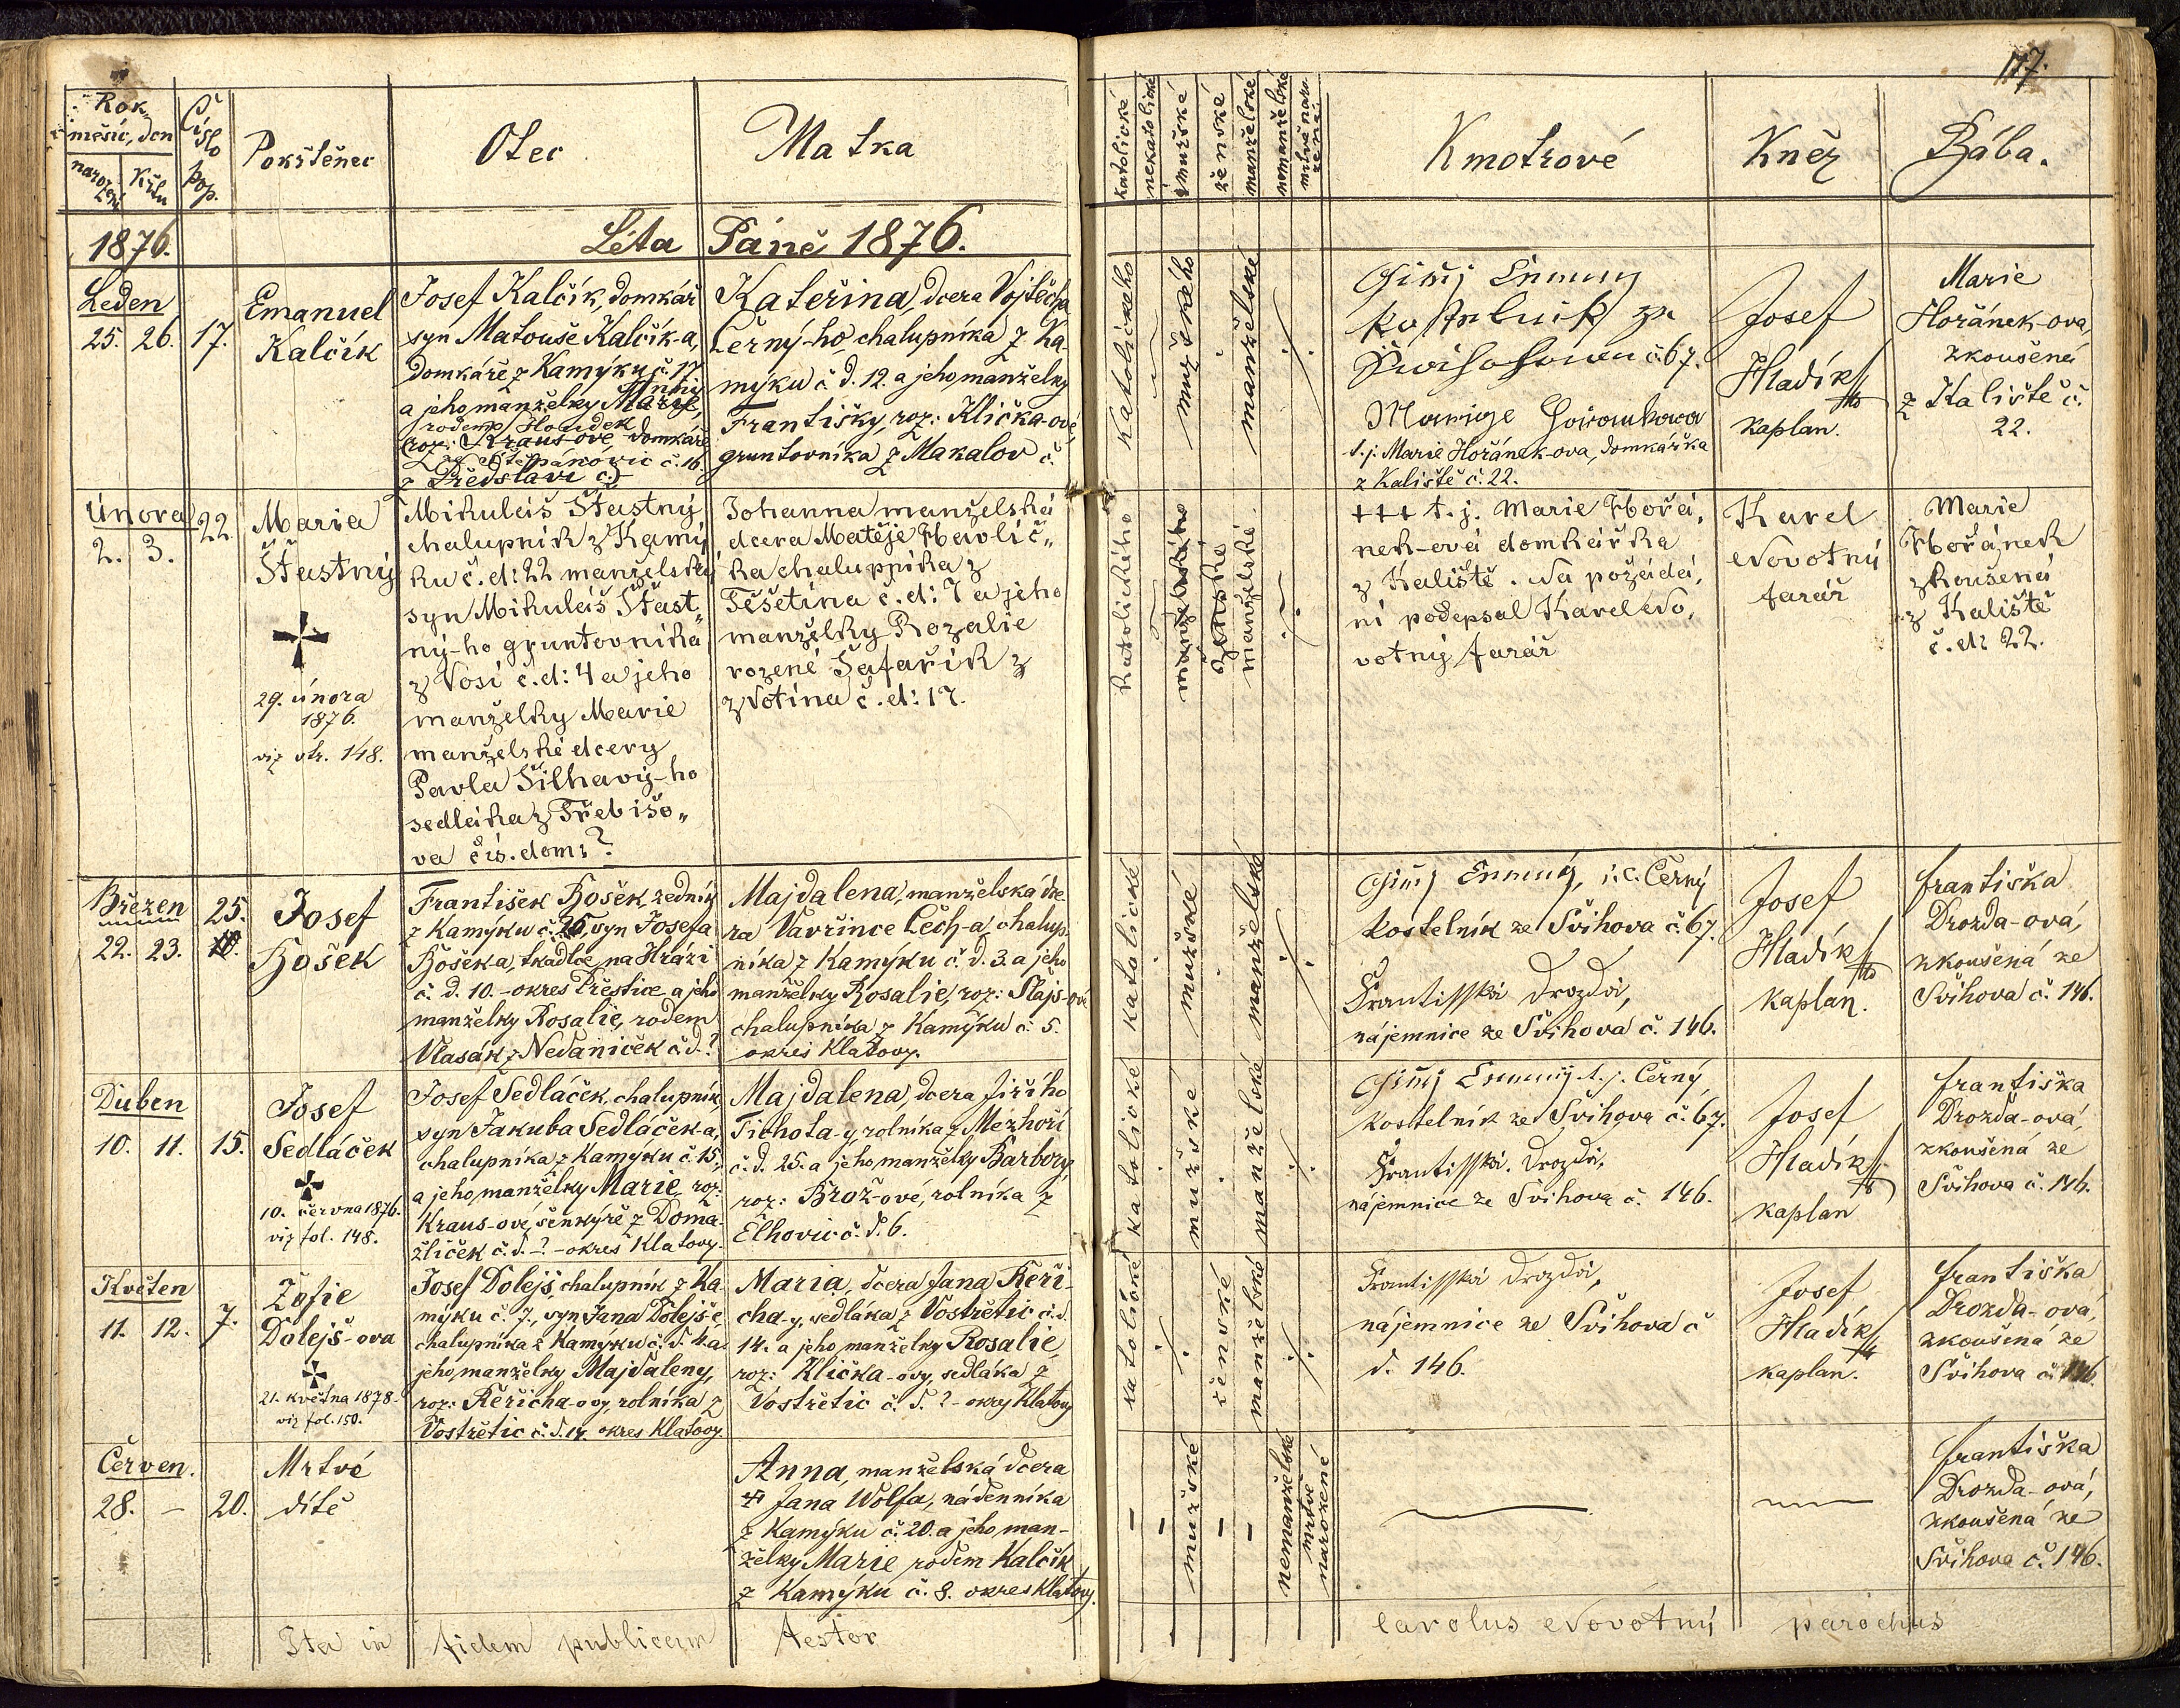 117.
Rok,
měsíc, den
narození
Křtu
Číslo
pop.
Pokřtěnec
Otec
Matka
katolické
nekatolické
mužské
ženské
manželské
nemanželské
mrtvě narozené
Kmotrové
Kněz
Bába.
1876.
Léta Páně 1876.
Leden
25. 26. 17.
Emanuel
Kalčík
Josef Kalčík, domkář
syn Matouše Kalčík-a,
domkáře z Kamýku č. 17
a jeho manželky Marie,
Anny
rodem Houdek
roz: Kraus-ové, domkáře
ze Štěpánovic č. 16.
z Předslavi č.
Kateřina, dcera Vojtěcha
Černý-ho, chalupníka z Ka-
mýku č. d. 12. a jeho manželky
Františky, roz: Klička-ové,
gruntovníka z Makalov č.
katolického
mužského
manželské
č. 67.
t. j. Marie Hořánek-ova, domkářka
z Kaliště č. 22.
Josef
Hladík
kaplan.
Marie
Hořánek-ova,
zkoušená
z Kaliště č.
22.
Února
2. 3. 22.
Maria
Šťastný
29. února
1876.
viz str. 148.
Mikuláš Šťastný
chalupník z Kamý
ku č. d: 22 manželský
syn Mikuláš Šťast„
ný-ho gruntovníka
z Vosí č. d: 4 a jeho
manželky Marie
manželské dcery
Pavla Šilhavý-ho
sedláka z Třebišo„
va čís. dom: ?
Johanna manželská
dcera Matěje Havlíč„
ka chalupníka z
Těšetína č. d: 7 a jeho
manželky Rozalie
rozené Šafařík z
z Votína č. d: 17.
katolického
ženské
manželské
+++ t. j. Marie Hořá,
nek-ová domkářka
z Kaliště. Na požádá,
ní podepsal Karel No,
votný farář
Karel
Novotný
farář
Marie
Hořánek
zkoušená
z Kaliště
č. d: 22.
Březen
22. 23. 25.
Josef
Bošek
František Bošek, zedník
z Kamýku č. 25, syn Josefa
Bošek-a, tkadlce na Hrázi
č. d. 10. - okres Přeštice a jeho
manželky Rosalie, rodem
Vlasák z Nedaniček č. d. ?
Majdalena, manželská dce-
ra Vavřince Čech-a, chalup-
níka z Kamýku č. d. 3. a jeho
manželky Rosalie, roz: Slajs-ové
chalupníka z Kamýku č. 5.
okres Klatovy.
katolické
mužské
manželské
i. e. Černý
kostelník ze Švihova č. 67.
Františka Drozda,
nájemnice ze Švihova č. 146.
Josef
Hladík
kaplan.
Františka
Drozda-ová,
zkoušená ze
Švihova č. 146.
Duben
10. 11. 15.
Josef
Sedláček
10. června 1876.
viz fol. 148.
Josef Sedláček, chalupník,
syn Jakuba Sedláček-a,
chalupníka z Kamýku č. 15,
a jeho manželky Marie, roz:
Kraus-ové, šenkýře z Doma-
žliček č. d. - ? - okres Klatovy.
Majdalena, dcera Jiřího
Tichota-y, rolníka z Mezhoří
č. d. 25. a jeho manželky Barbory,
roz: Brož-ové, rolníka z
Elhovic č. d. 6.
katolické
mužské
manželské
t. j. Černý,
kostelník ze Švihova č. 67.
Františka Drozda,
nájemnice ze Švihova č. 146.
Josef
Hladík
kaplan
Františka
Drozda-ová,
zkoušená ze
Švihova č. 146.
Květen
11. 12. 7.
Žofie
Dolejš-ova
21. května 1878.
viz fol. 150.
Josef Dolejš, chalupník z Ka-
mýku č. 7., syn Jana Dolejš-e,
chalupníka z Kamýku č. d. 4. a
jeho manželky Majdaleny,
roz: Řeřicha-ovy rolníka z
Vostřetic č. d. 14. okres Klatovy.
Maria, dcera Jana Řeři-
cha-y, sedláka z Vostřetic č. d.
14. a jeho manželky Rosalie,
roz: Klička-ovy, sedláka z
Vostřetic č. d. ? - okres Klatovy
katolické
ženské
manželské
Františka Drozda,
nájemnice ze Švihova č
d. 146.
Josef
Hladík
kaplan.
Františka
Drozda-ová,
zkoušená ze
Švihova č. 146.
Červen.
28. - 20.
Mrtvé
dítě
Anna, manželská dcera
Jana Wolfa, nádenníka
z Kamýku č. 20. a jeho man-
želky Marie rodem Kalčík
z Kamýku č. 8. okres Klatovy.
mužské
nemanželské
mrtvě
narozené
Františka
Drozda-ová,
zkoušená ze
Švihova č. 146.
Ita in fidem publicam testor
Carolus Novotný parochus